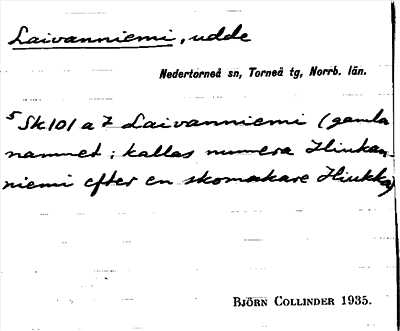 Laivanniemi, udde
Nedertorneå sn, Torneå tg, Norrb. län.
5 Sk 101 a 7 Laivanniemi (gamla
namnet; kallas numera Hiukan-
niemi efter en skomakare Hiukka)
BJÖRN COLLINDER 1935.